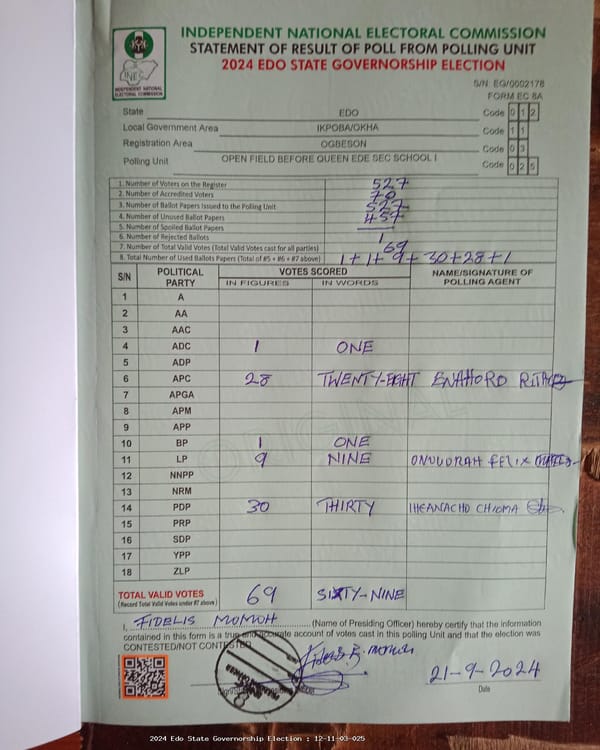 INDEPENDENT NATIONAL ELECTORAL COMMISSION
STATEMENT OF RESULT OF POLL FROM POLLING UNIT
2024 EDO STATE GOVERNORSHIP ELECTION
INEC
INDEPENDENT NATIONAL ELECTORAL COMMISSION
S/N EG/0002178
FORM EC 8A
State EDO Code 0 1 2
Local Government Area IKPOBA/OKHA Code 1 1
Registration Area OGBESON Code 0 3
Polling Unit OPEN FIELD BEFORE QUEEN EDE SEC SCHOOL I Code 0 2 5
1. Number of Voters on the Register 527
2. Number of Accredited Voters 70
3. Number of Ballot Papers Issued to the Polling Unit 527
4. Number of Unused Ballot Papers 457
5. Number of Spoiled Ballot Papers
6. Number of Rejected Ballots 1
7. Number of Total Valid Votes (Total Valid Votes cast for all parties) 69
8. Total Number of Used Ballots Papers (Total of #5 + #6 + #7 above) 1+1+9+30+28+1
S/N POLITICAL PARTY VOTES SCORED NAME/SIGNATURE OF POLLING AGENT
IN FIGURES IN WORDS
1 A
2 AA
3 AAC
4 ADC 1 ONE
5 ADP
6 APC 28 TWENTY-EIGHT ENAHORO RITA
7 APGA
8 APM
9 APP
10 BP 1 ONE
11 LP 9 NINE ONUORAH FELIX
12 NNPP
13 NRM
14 PDP 30 THIRTY IHEANACHO CHIOMA
15 PRP
16 SDP
17 YPP
18 ZLP
TOTAL VALID VOTES 69 SIXTY-NINE
(Record Total Valid Votes under #7 above)
I, FIDELIS MOMOH (Name of Presiding Officer) hereby certify that the information
contained in this form is a true and accurate account of votes cast in this polling Unit and that the election was
CONTESTED/NOT CONTESTED
21-9-2024
Date
2024 Edo State Governorship Election : 12-11-03-025